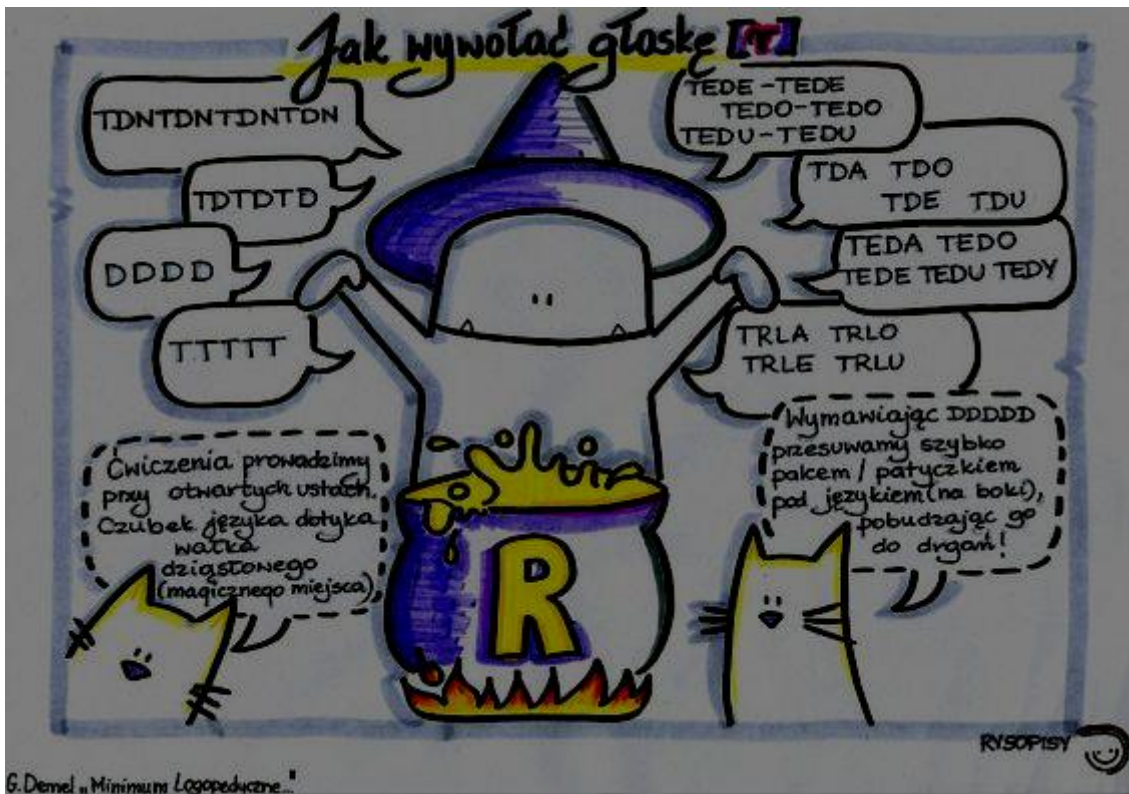 Jak wywołać głoskę [r]
TDNTDNTDNTDN
TDTDTD
DDDD
TTTTT
TEDE-TEDE
TEDO-TEDO
TEDU-TEDU
TDA TDO
TDE TDU
TEDA TEDO
TEDE TEDU TEDY
TRLA TRLO
TRLE TRLU
Ćwiczenia prowadzimy
przy otwartych ustach.
Czubek języka dotyka
wałka
dziąsłowego
(magicznego miejsca)
Wymawiając DDDDD
przesuwamy szybko
palcem / patyczkiem
pod językiem (na boki),
pobudzając go
do drgań!
R
RYSOPISY
G. Demel „Minimum Logopedyczne..."